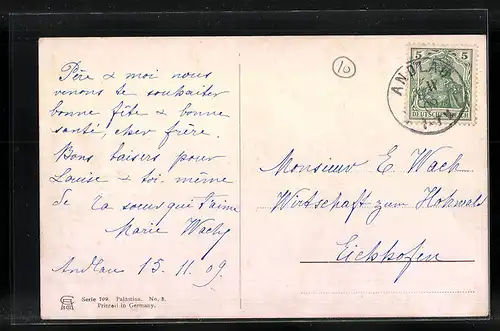 Père & moi nous
venons te souhaiter
bonne fête & bonne
santé, cher frère.
Bons baisers pour
Louise & toi-même
de ta soeur qui t'aime
Marie Wach
Andlau 15.11.09.
Serie 109. Palästina. No. 3.
Printed in Germany.
10
5
DEUTSCHES REICH
ANDLAU
Monsieur E. Wach
Wirtschaft zum Hohwald
Eichhofen